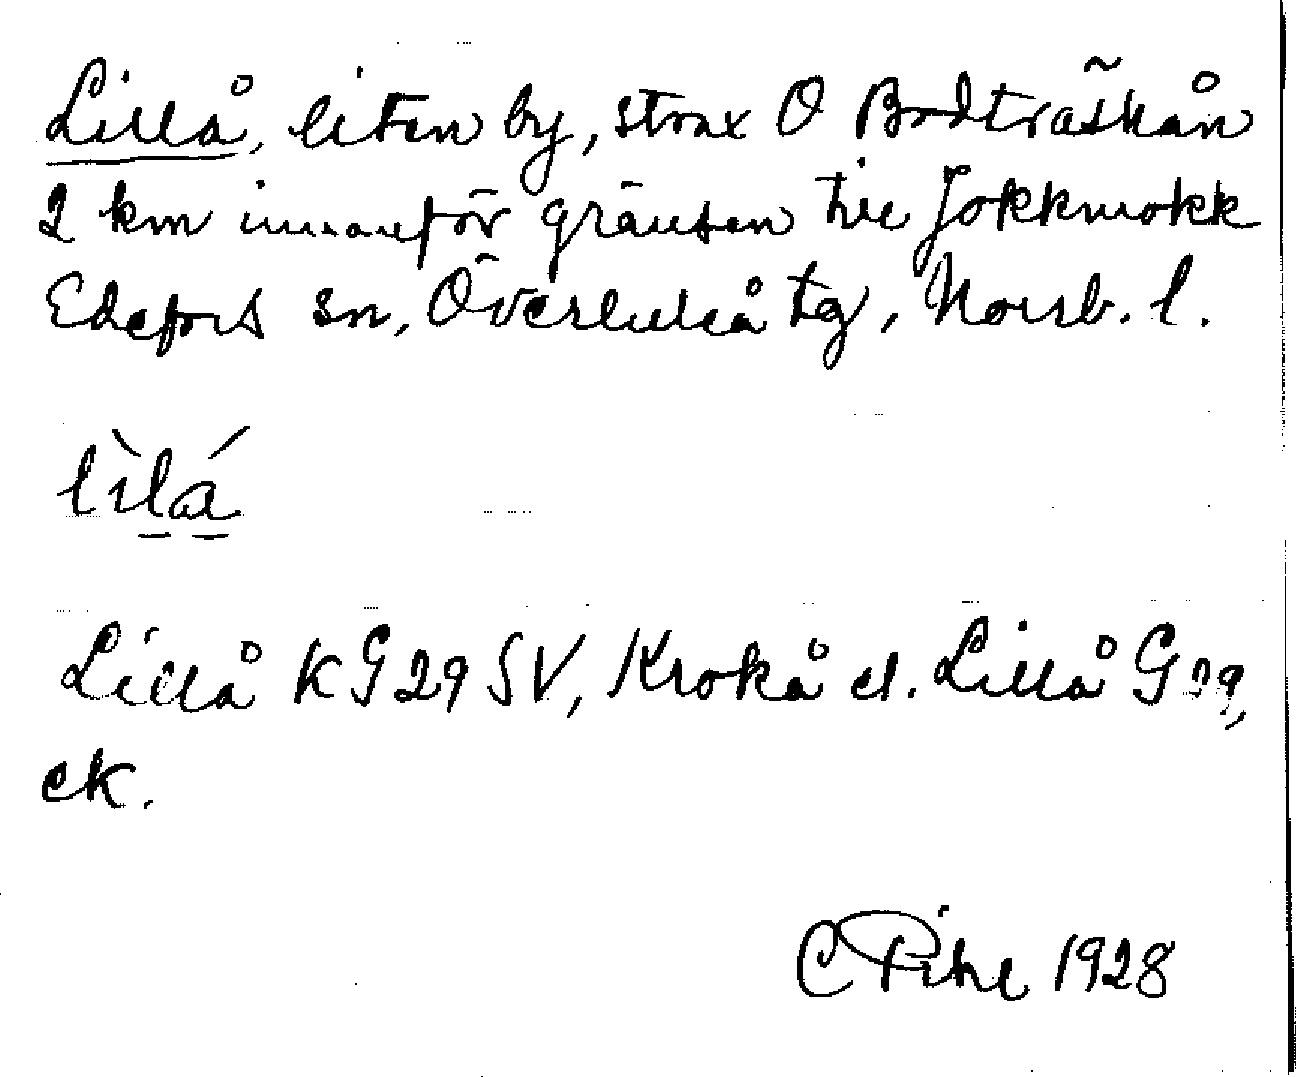 Lillå, liten by, strax O Bodträskån
2 km innanför gränsen till Jokkmokk
Edefors sn, Överluleå tg, Norrb. l.
lìlá
Lillå KG29SV, Krokå el. Lillå G29,
ek.
C Pihl 1928